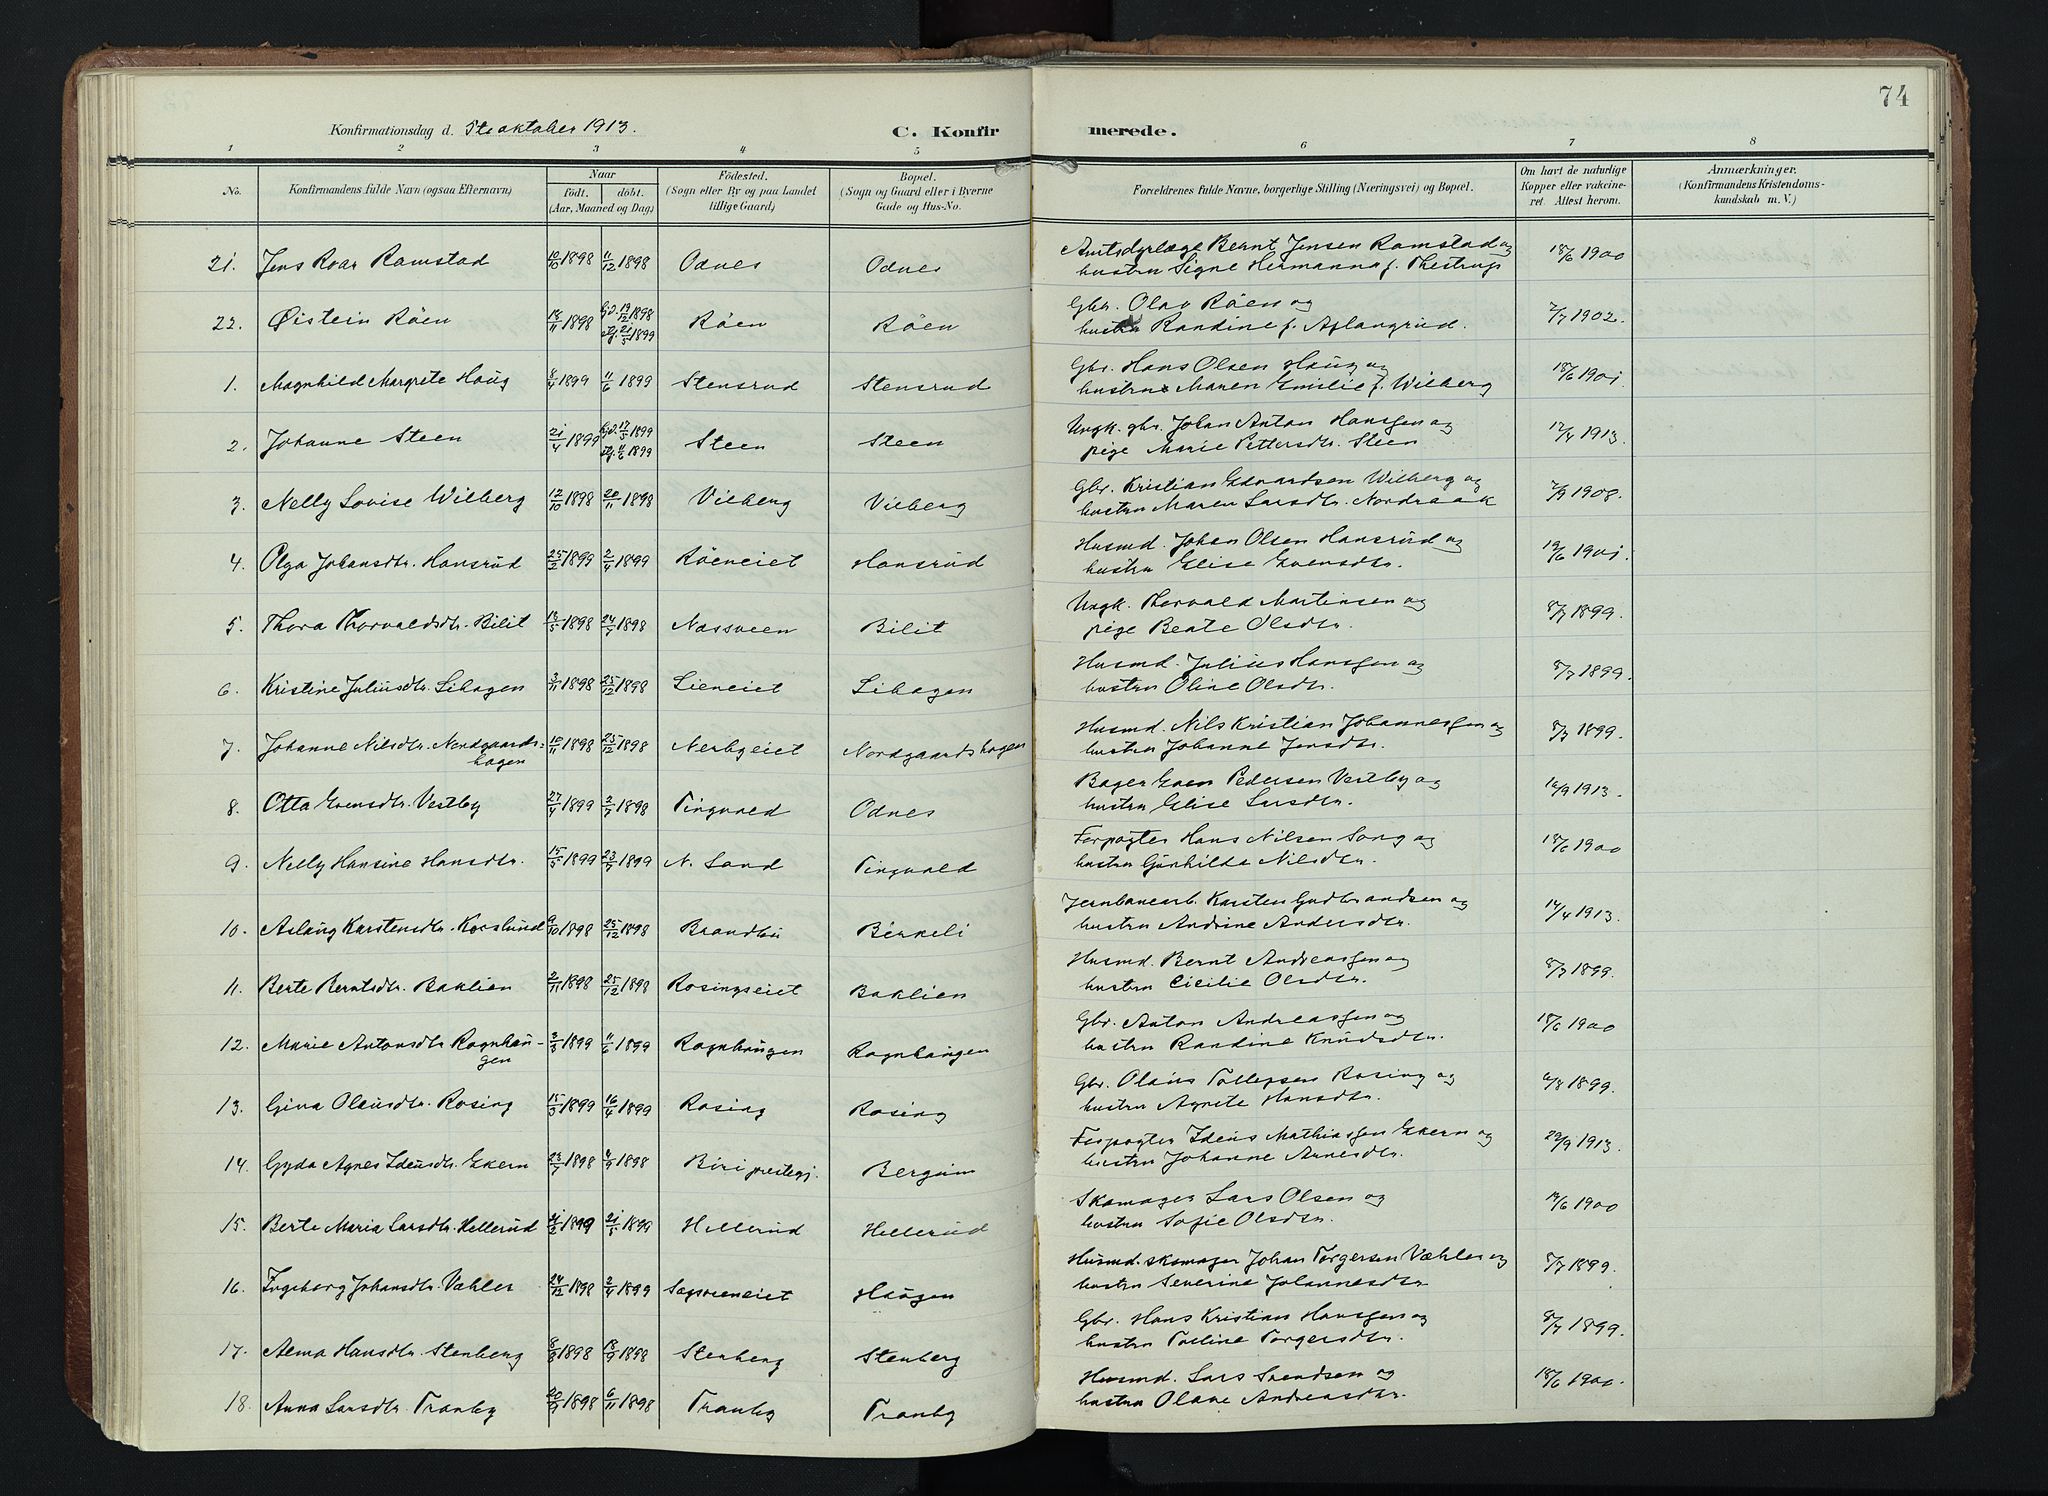 74
Konfirmationsdag d. 5te oktober 1913.
C. Konfirmerede.
1 2 3 4 5 6 7 8
No. Konfirmandens fulde Navn (ogsaa Efternavn) Naar født. døbt. (Aar, Maaned og Dag) Fødested. (Sogn eller By og paa Landet tillige Gaard) Bopæl. (Sogn og Gaard eller i Byerne Gade og Hus-No. Forældrenes fulde Navne, borgerlige Stilling (Næringsvei) og Bopæl. Om havt de naturlige Kopper eller vakcineret. Attest herom. Anmærkninger. (Konfirmandens Kristendomskundskab m. V.)
21. Jens Roar Ramstad 10/10 1898 11/12 1898 Odnes Odnes Amtsdyrlæge Bernt Jensen Ramstad og hustru Signe Hermanna f. Thestrup 18/6 1900
22. Øistein Røen 18/11 1898 hjd. 19/12 1898 stf. 21/5 1899 Røen Røen Gbr. Olav Røen og hustru Randine f. Aslangrud. 7/7 1902.
1. Magnhild Margrete Haug 8/4 1899 11/6 1899 Stensrud Stensrud Gbr. Hans Olsen Haug og hustru Maren Emilie f. Wilberg 18/6 1901
2. Johanne Steen 21/4 1899 hjd. 17/5 1899 stf. 11/6 1899 Steen Steen Ungk. gbr. Johan Anton Hansen og pige Marie Pettersdtr. Steen 12/4 1913.
3. Nelly Lovise Wilberg 12/10 1898 20/11 1898 Vilberg Vilberg Gbr. Kristian Edvardsen Wilberg og hustru Maren Larsdtr. Nordraak 7/9 1908.
4. Olga Johansdtr. Hansrud 25/2 1899 2/4 1899 Røeneiet Hansrud Husmd. Johan Olsen Hansrud og hustru Elise Evensdtr. 19/6 1901.
5. Thora Thorvaldsdtr. Bilit 18/5 1898 24/7 1898 Næssveen Bilit Ungk. Thorvald Martinsen og pige Beate Olsdtr. 8/7 1899.
6. Kristine Juliusdtr. Lihagen 3/11 1898 25/12 1898 Lieneiet Lihagen Husmd. Julius Hansen og hustru Oline Olsdtr. 8/7 1899.
7. Johanne Nilsdtr. Nordgaardshagen 10/11 1898 25/12 1898 Nerbyeiet Nordgaardshagen Husmd. Nils Kristian Johannessen og hustru Johanne Jensdtr. 8/7 1899.
8. Otta Evensdtr. Vestby 27/4 1899 2/7 1898 Tingvold Odnes Bager Even Pedersen Vestby og hustru Elise Larsdtr. 16/9 1913.
9. Nelly Hansine Hansdtr. 15/5 1899 23/7 1899 N. Land Tingvold Forpagter Hans Nilsen Song og hustru Gunhilda Nilsdtr. 18/6 1900
10. Aslaug Karstensdtr. Korslund 9/10 1898 25/12 1898 Brandbu Birkeli Jernbanearb. Karsten Gudbrandsen og hustru Andrine Andersdtr. 14/4 1913.
11. Berte Berntsdtr. Baklien 2/11 1898 25/12 1898 Rosingseiet Baklien Husmd. Bernt Andreassen og hustru Cicilie Olsdtr. 8/7 1899.
12. Marie Antonsdtr. Rognhaugen 3/3 1899 11/6 1899 Rognhaugen Rognhaugen Gbr. Anton Andreassen og hustru Randine Knudsdtr. 18/6 1900
13. Gina Olausdtr. Rosing 15/3 1899 16/4 1899 Rosing Rosing Gbr. Olaus Tollefsen Rosing og hustru Agnete Hansdtr. 6/8 1899.
14. Gyda Agnes Idensdtr. Ekern 23/7 1898 4/9 1898 Biri prestegj. Bergum Forpagter Idens Mathiassen Ekern og hustru Johanne Arnesdtr. 29/9 1913.
15. Berte Maria Larsdtr. Hellerud 21/2 1899 21/5 1899 Hellerud Hellerud Skomager Lars Olsen og hustru Sofie Olsdtr. 19/6 1900
16. Ingeborg Johansdtr. Væhler 24/12 1898 2/4 1899 Sagvoeneiet Haugen Husmd. skomager Johan Torgersen Væhler og hustru Severine Johannesdtr 8/7 1899.
17. Alma Hansdtr. Stenberg 8/8 1898 18/9 1898 Stenberg Stenberg Gbr. Hans Kristian Hansen og hustru Polline Torgersdtr. 8/7 1899.
18. Anna Larsdtr. Tranby 20/9 1898 6/11 1898 Tranby Tranby Husmd. Lars Svendsen og hustru Olave Andreasdtr. 18/6 1900.